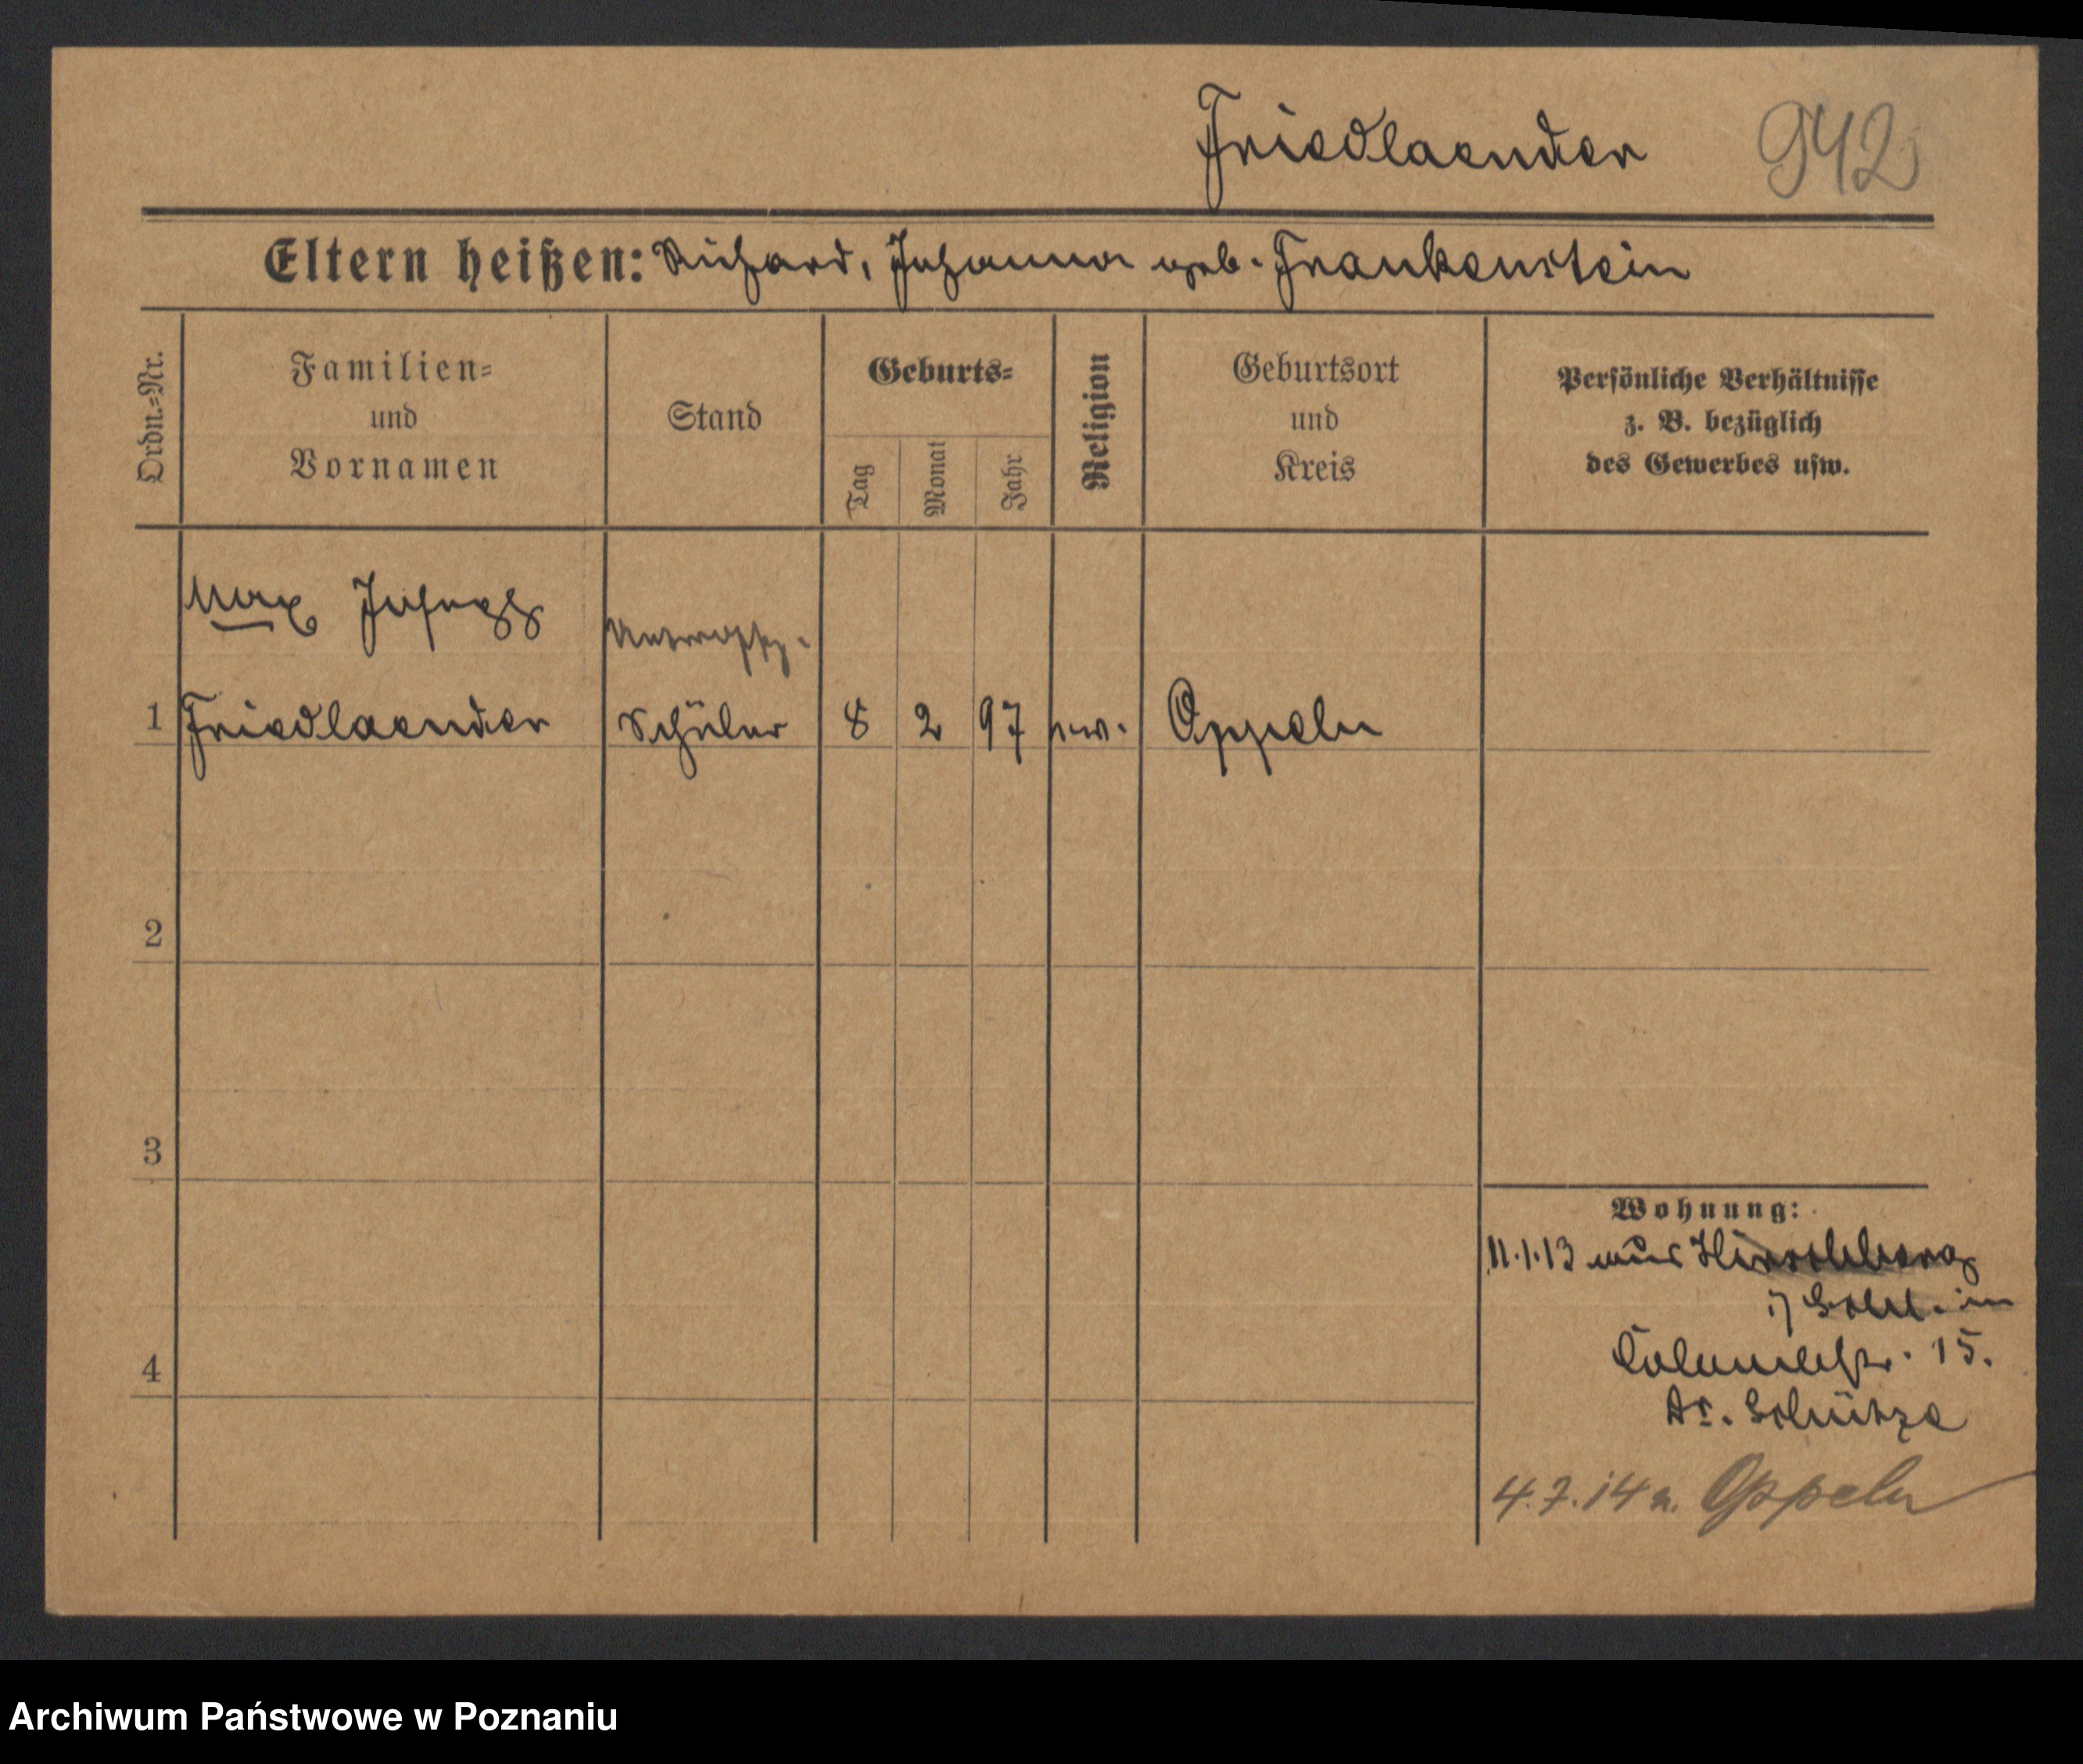 Friedlaender 942
Eltern heißen: Richard, Johanna geb. Frankenstein
Ordn.-Nr.
Familien-
und
Vornamen
Stand
Geburts-
Tag
Monat
Jahr
Religion
Geburtsort
und
Kreis
Persönliche Verhältnisse
z. B. bezüglich
des Gewerbes usw.
Max Joseph
1 Friedlaender Schüler 8 2 97 Oppeln
2
3
4
Wohnung:
11.1.13 aus Hirschberg
i/ Schl. in
15.
Dr. Schütze
4.7.14 n. Oppeln
Archiwum Państwowe w Poznaniu